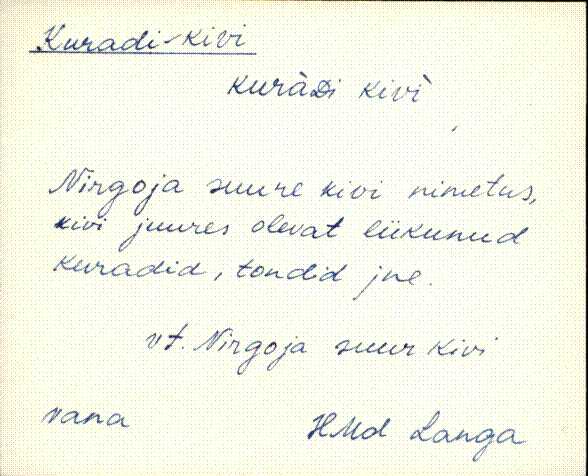 Kuradi-kivi
kuràDi kivì
Nirgoja suure kivi nimetus,
kivi juures olevat liikunud
kuradid, tondid jne.
vt. Nirgoja suur kivi
vana HMd Langa